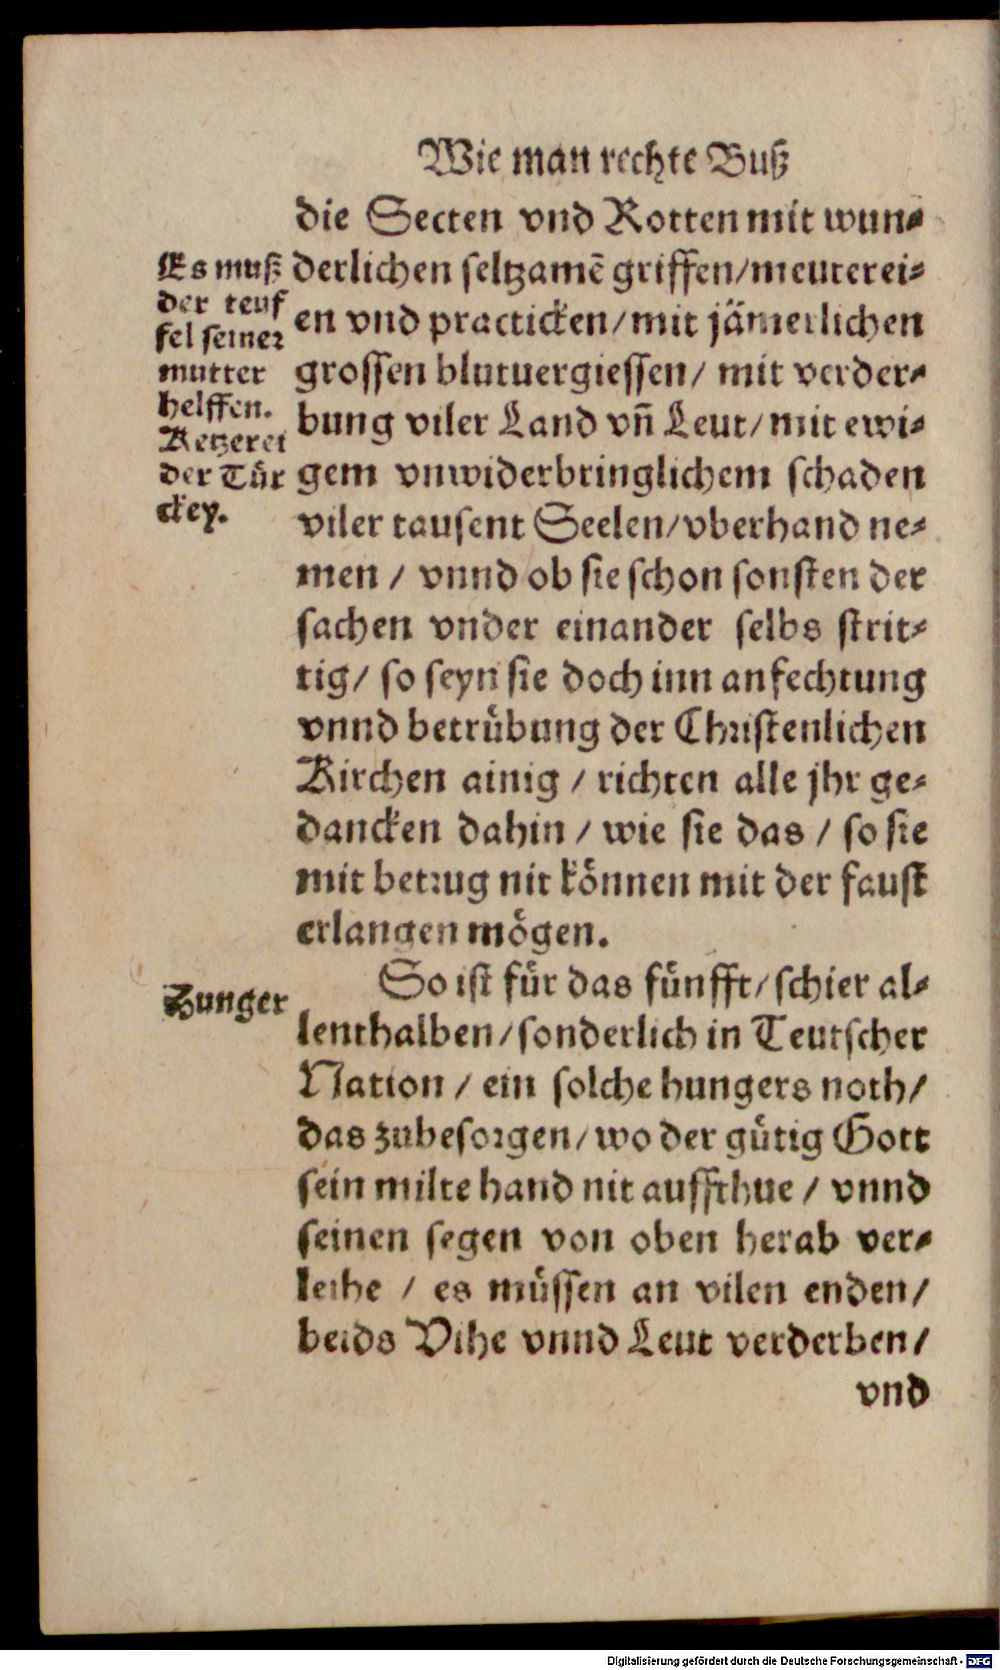 Wie man rechte Buß
die Secten vnd Rotten mit wun⸗
derlichen seltzamẽ griffen/meuterei⸗
en vnd practicken/mit jämerlichen
grossen blutuergiessen/ mit verder⸗
bung viler Land vñ Leut/mit ewi⸗
gem vnwiderbringlichem schaden
viler tausent Seelen/vberhand ne⸗
men / vnnd ob sie schon sonsten der
sachen vnder einander selbs strit⸗
tig/ so seyn sie doch inn anfechtung
vnnd betrübung der Christenlichen
Kirchen ainig / richten alle jhr ge⸗
dancken dahin / wie sie das / so sie
mit betrug nit können mit der faust
erlangen mögen.
Es muß
der teuf
fel seiner
mutter
helffen.
Ketzerei
der Tür
ckey.
So ist für das fünfft/schier al⸗
lenthalben/sonderlich in Teutscher
Nation / ein solche hungers noth/
das zubesorgen/wo der gütig Gott
sein milte hand nit auffthue / vnnd
seinen segen von oben herab ver⸗
leihe / es müssen an vilen enden/
beids Vihe vnnd Leut verderben/
vnd
Hunger
Digitalisierung gefördert durch die Deutsche Forschungsgemeinschaft - DFG